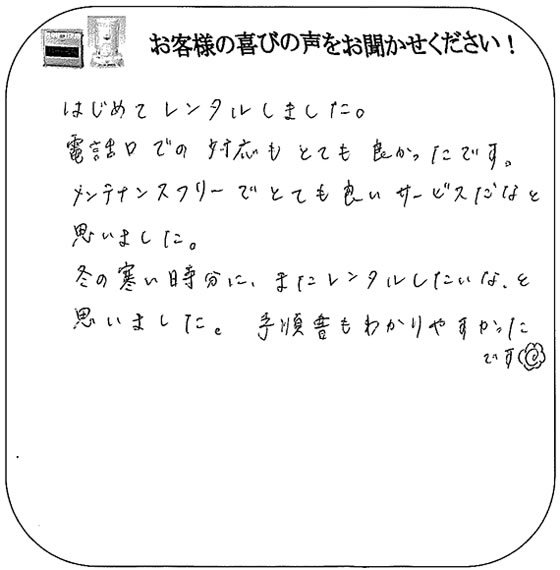 お客様の喜びの声をお聞かせください！
はじめてレンタルしました。
電話口での対応もとても良かったです。
メンテナンスフリーでとても良いサービスだなと
思いました。
冬の寒い時分に、またレンタルしたいな、と
思いました。手順書もわかりやすかった
です